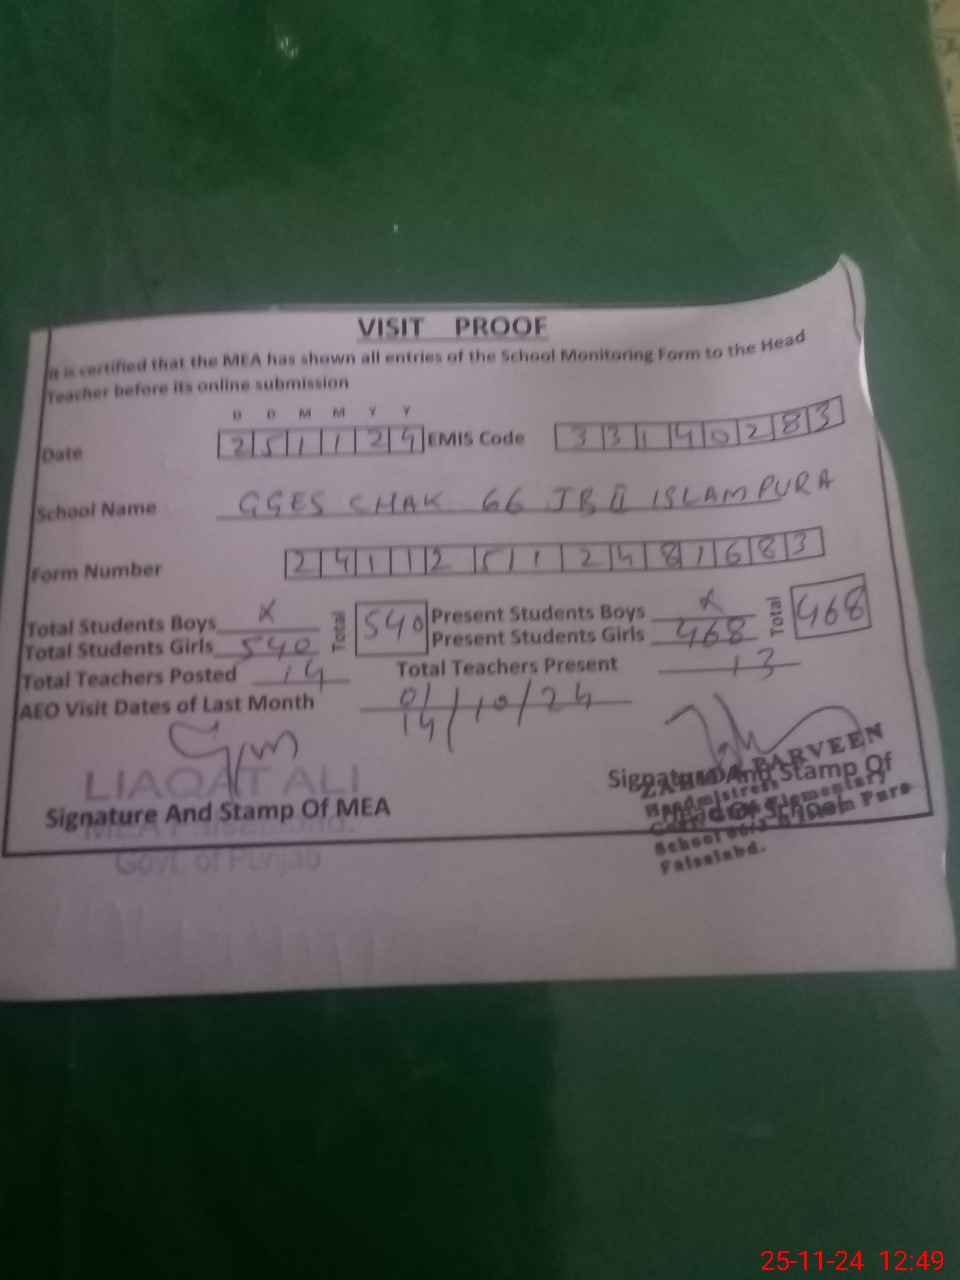 VISIT PROOF
It is certified that the MEA has shown all entries of the School Monitoring Form to the Head
Teacher before its online submission
D D M M Y Y
Date 251124 EMIS Code 33140283
School Name GGES CHAK 66 JB II ISLAMPURA
Form Number 241125112481683
Total Students Boys X Total 540 Present Students Boys X Total 468
Total Students Girls 540 Present Students Girls 468
Total Teachers Posted 14 Total Teachers Present 13
AEO Visit Dates of Last Month 01/14/10/24
LIAQAT ALI
Signature And Stamp Of MEA
MEA Faisalabad.
Govt. of Punjab
Signature And Stamp Of
Head Of School
PARVEEN
Headmistress
Elementary
School Islam Pura
Faisalabd.
25-11-24 12:49